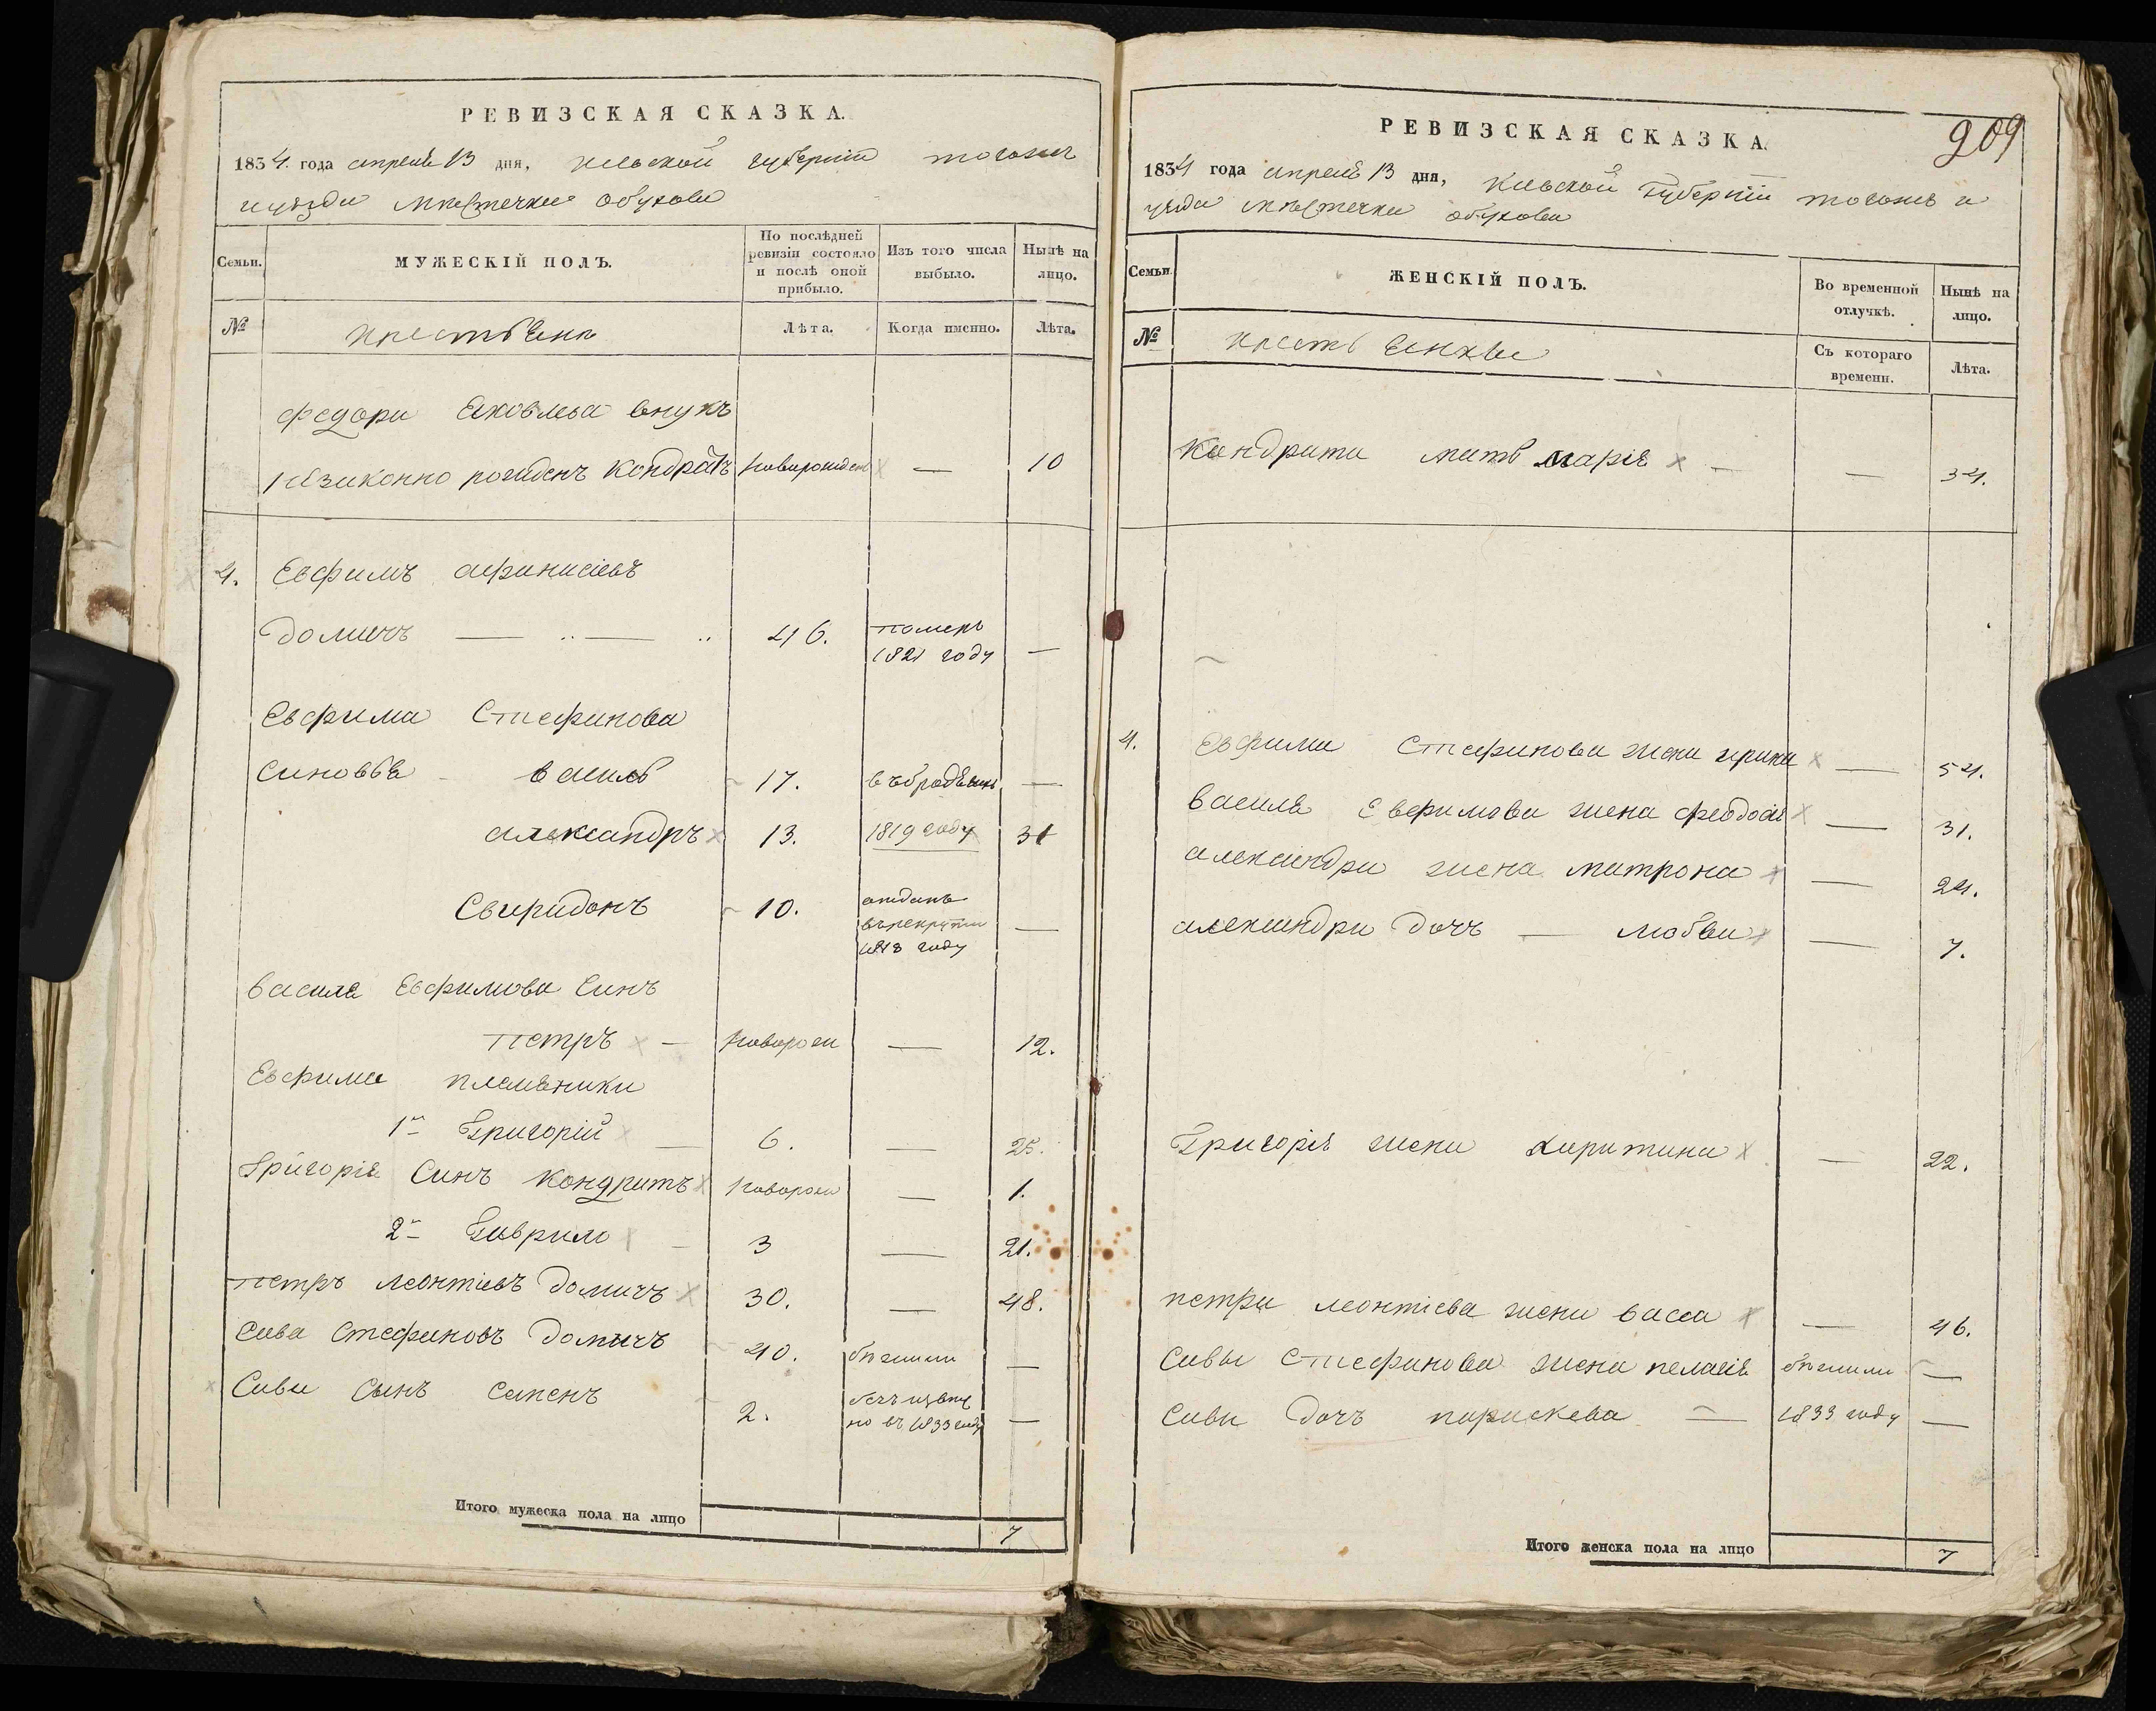 РЕВИЗСКАЯ СКАЗКА.
1834. года апреля 13 дня, киевской губернии тогожъ
и уѣзда мѣстечка обухова
Семьи. МУЖЕСКІЙ ПОЛЪ. По послѣдней ревизіи состояло и послѣ оной прибыло. Изъ того числа выбыло. Нынѣ на лицо.
№ крестьяне Лѣта. Когда именно. Лѣта.
федора яковлева внукъ
незаконно рожденъ Кондратъ новорожден — 10
4. Евфимъ афанасіевъ
Домичъ — .. — .. 46. померъ
1821 году —
Евфима Стефанова
синовья василь 17. —
александръ 13. 1819 году 31
Свиридонъ 10. отданъ
въ рекруты —
1818 году
василя Евфимова Синъ
петръ — новорож — 12.
Евфима племѣники
1й Григорій — 6. — 25.
Григорія Синъ Кондратъ новорож — 1.
2й Гаврило — 3 — 21.
петръ леонтіевъ домичъ 30. — 48.
Сава Стефановъ Домичъ 40. бѣжали —
Савы Сынъ Семенъ 2. безъизвѣстно въ 1833 году —
Итого мужеска пола на лицо 7
РЕВИЗСКАЯ СКАЗКА.
909
1834 года апреля 13 дня, Киевской Губерніи тогожъ и
уезда мѣстечка обухова
Семьи ЖЕНСКІЙ ПОЛЪ. Во временной отлучкѣ. Нынѣ на лицо.
№ крестьянки Съ котораго времени. Лѣта.
Кондрата мать марія — — 34.
4. Евфима Стефанова жена ирина — 54.
василя Евфимова жена феодосія — 31.
александра жена матрона — 24.
александра дочъ — любва — 7.
Григорія жена харитина — 22.
петра леонтіева жена васса — 46.
Савы Стефанова жена пелагія бѣжали —
Савы Дочъ параскева — 1833 году —
Итого женска пола на лицо 7